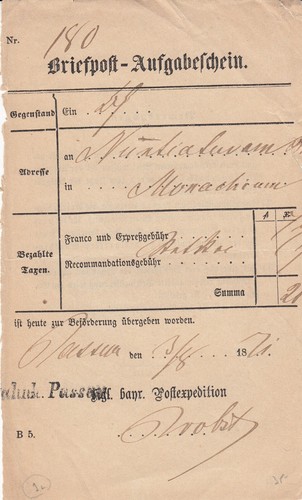 Nr. 180
Briefpost-Aufgabeschein.
Gegenstand Ein
Adresse
an Nuntiaturam
in Monachium
Bezahlte Taxen.
Franco und Expreßgebühr
Recommandationsgebühr
Summa
ist heute zur Beförderung übergeben worden.
Passau den 3/8 1871.
Passau
Kgl. bayr. Postexpedition
B 5.